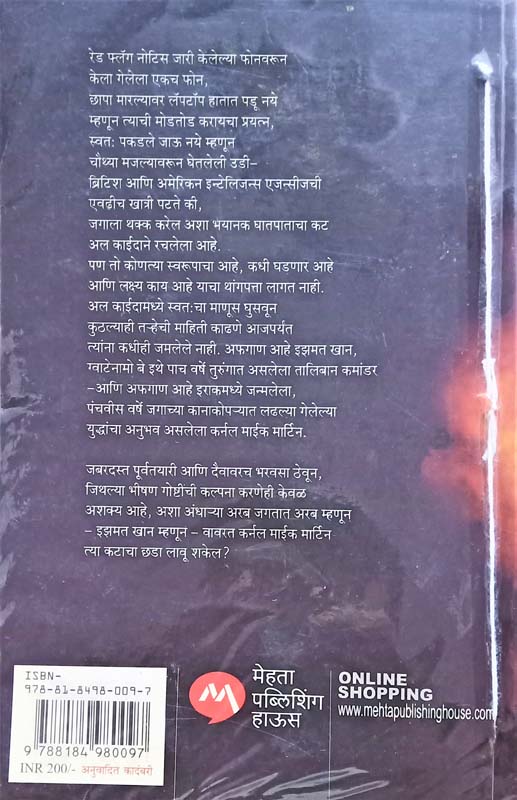 रेड फ्लॅग नोटिस जारी केलेल्या फोनवरून
केला गेलेला एकच फोन,
छापा मारल्यावर लॅपटॉप हातात पडू नये
म्हणून त्याची मोडतोड करायचा प्रयत्न,
स्वत: पकडले जाऊ नये म्हणून
चौथ्या मजल्यावरून घेतलेली उडी–
ब्रिटिश आणि अमेरिकन इन्टेलिजन्स एजन्सीजची
एवढीच खात्री पटते की,
जगाला थक्क करेल अशा भयानक घातपाताचा कट
अल काईदाने रचलेला आहे.
पण तो कोणत्या स्वरूपाचा आहे, कधी घडणार आहे
आणि लक्ष्य काय आहे याचा थांगपत्ता लागत नाही.
अल काईदामध्ये स्वत:चा माणूस घुसवून
कुठल्याही तऱ्हेची माहिती काढणे आजपर्यंत
त्यांना कधीही जमलेले नाही. अफगाण आहे इझमत खान,
ग्वाटेनामो बे इथे पाच वर्षे तुरुंगात असलेला तालिबान कमांडर
–आणि अफगाण आहे इराकमध्ये जन्मलेला,
पंचवीस वर्षे जगाच्या कानाकोपऱ्यात लढल्या गेलेल्या
युद्धांचा अनुभव असलेला कर्नल माईक मार्टिन.
जबरदस्त पूर्वतयारी आणि दैवावरच भरवसा ठेवून,
जिथल्या भीषण गोष्टींची कल्पना करणेही केवळ
अशक्य आहे, अशा अंधाऱ्या अरब जगतात अरब म्हणून
– इझमत खान म्हणून – वावरत कर्नल माईक मार्टिन
त्या कटाचा छडा लावू शकेल?
ISBN-
978-81-8498-009-7
9 788184 980097
INR 200/- अनुवादित कादंबरी
मेहता
पब्लिशिंग
हाऊस
ONLINE
SHOPPING
www.mehtapublishinghouse.com